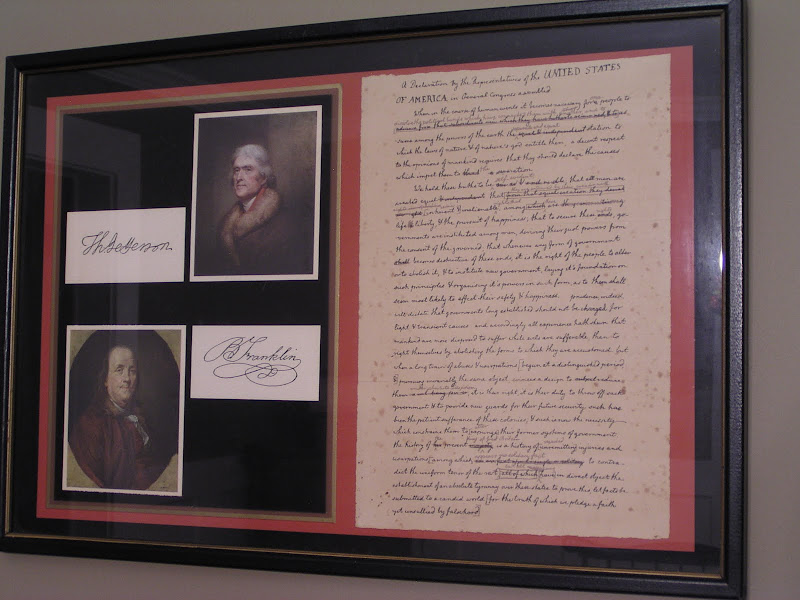 Th Jefferson
B Franklin
A Declaration by the Representatives of the UNITED STATES
OF AMERICA, in General Congress assembled
When in the course of human events it becomes necessary for a people to
advance from that subordination in which they have hitherto remained, & to as-
sume among the powers of the earth the equal & independant station to
which the laws of nature & of nature's god entitle them, a decent respect
to the opinions of mankind requires that they should declare the causes
which impel them to the separation.
We hold these truths to be self-evident, that all men are
created equal & independant
inherent & inalienable, among which are
life, liberty, & the pursuit of happiness; that to secure these ends, go-
vernments are instituted among men, deriving their just powers from
the consent of the governed; that whenever any form of government
shall becomes destructive of these ends, it is the right of the people to alter
or to abolish it, & to institute new government, laying it's foundation on
such principles & organising it's powers in such form, as to them shall
seem most likely to effect their safety & happiness. prudence indeed
will dictate that governments long established should not be changed for
light & transient causes: and accordingly all experience hath shewn that
mankind are more disposed to suffer while evils are sufferable, than to
right themselves by abolishing the forms to which they are accustomed. but
when a long train of abuses & usurpations [begun at a distinguished period,
& pursuing invariably the same object, evinces a design to subject reduce
them it is their right, it is their duty, to throw off such
government & to provide new guards for their future security. such has
been the patient sufferance of these colonies; & such is now the necessity
which constrains them to [expunge] their former systems of government.
the history of the present is a history of [unremitting] injuries and
usurpations, [among which,
dict the uniform tenor of the rest, [all of which] have in direct object the
establishment of an absolute tyranny over these states. to prove this, let facts be
submitted to a candid world, [for the truth of which we pledge a faith
yet unsullied by falsehood]